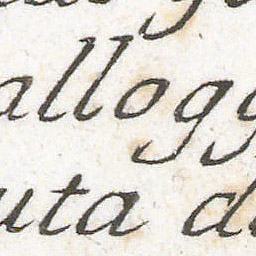 allogg
uta d